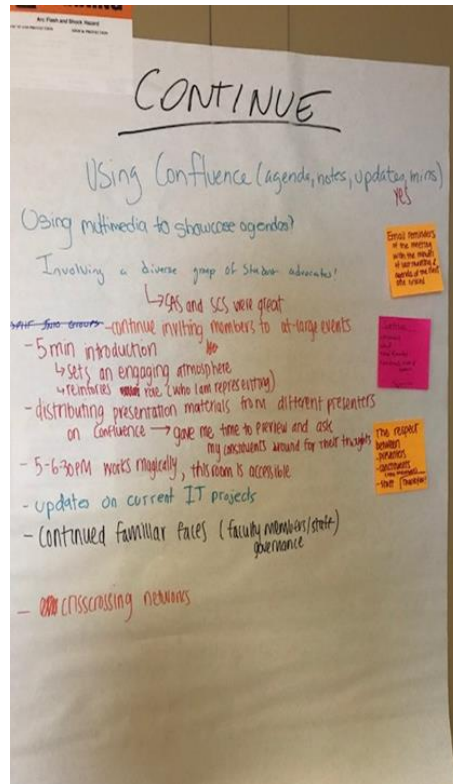 Arc Flash and Shock Hazard
CONTINUE
Using Confluence (agenda, notes, updates, mins)
yes
Using multimedia to showcase agendas?
Involving a diverse group of student advocates!
↳ CAS and SCS were great
- continue inviting members to at-large events
- 5 min introduction
↳ sets an engaging atmosphere
↳ reinforces role (who I am representing)
- distributing presentation materials from different presenters
on Confluence → gave me time to preview and ask
my constituents around for their thoughts
- 5-6:30PM works magically, this room is accessible
- updates on current IT projects
- Continued familiar faces (faculty members/staff)
governance
- crisscrossing networks
Email reminders
of the meeting
with the minutes
of last meeting &
agenda of the next
one linked
The respect
between
- presenters
- constituents
- staff